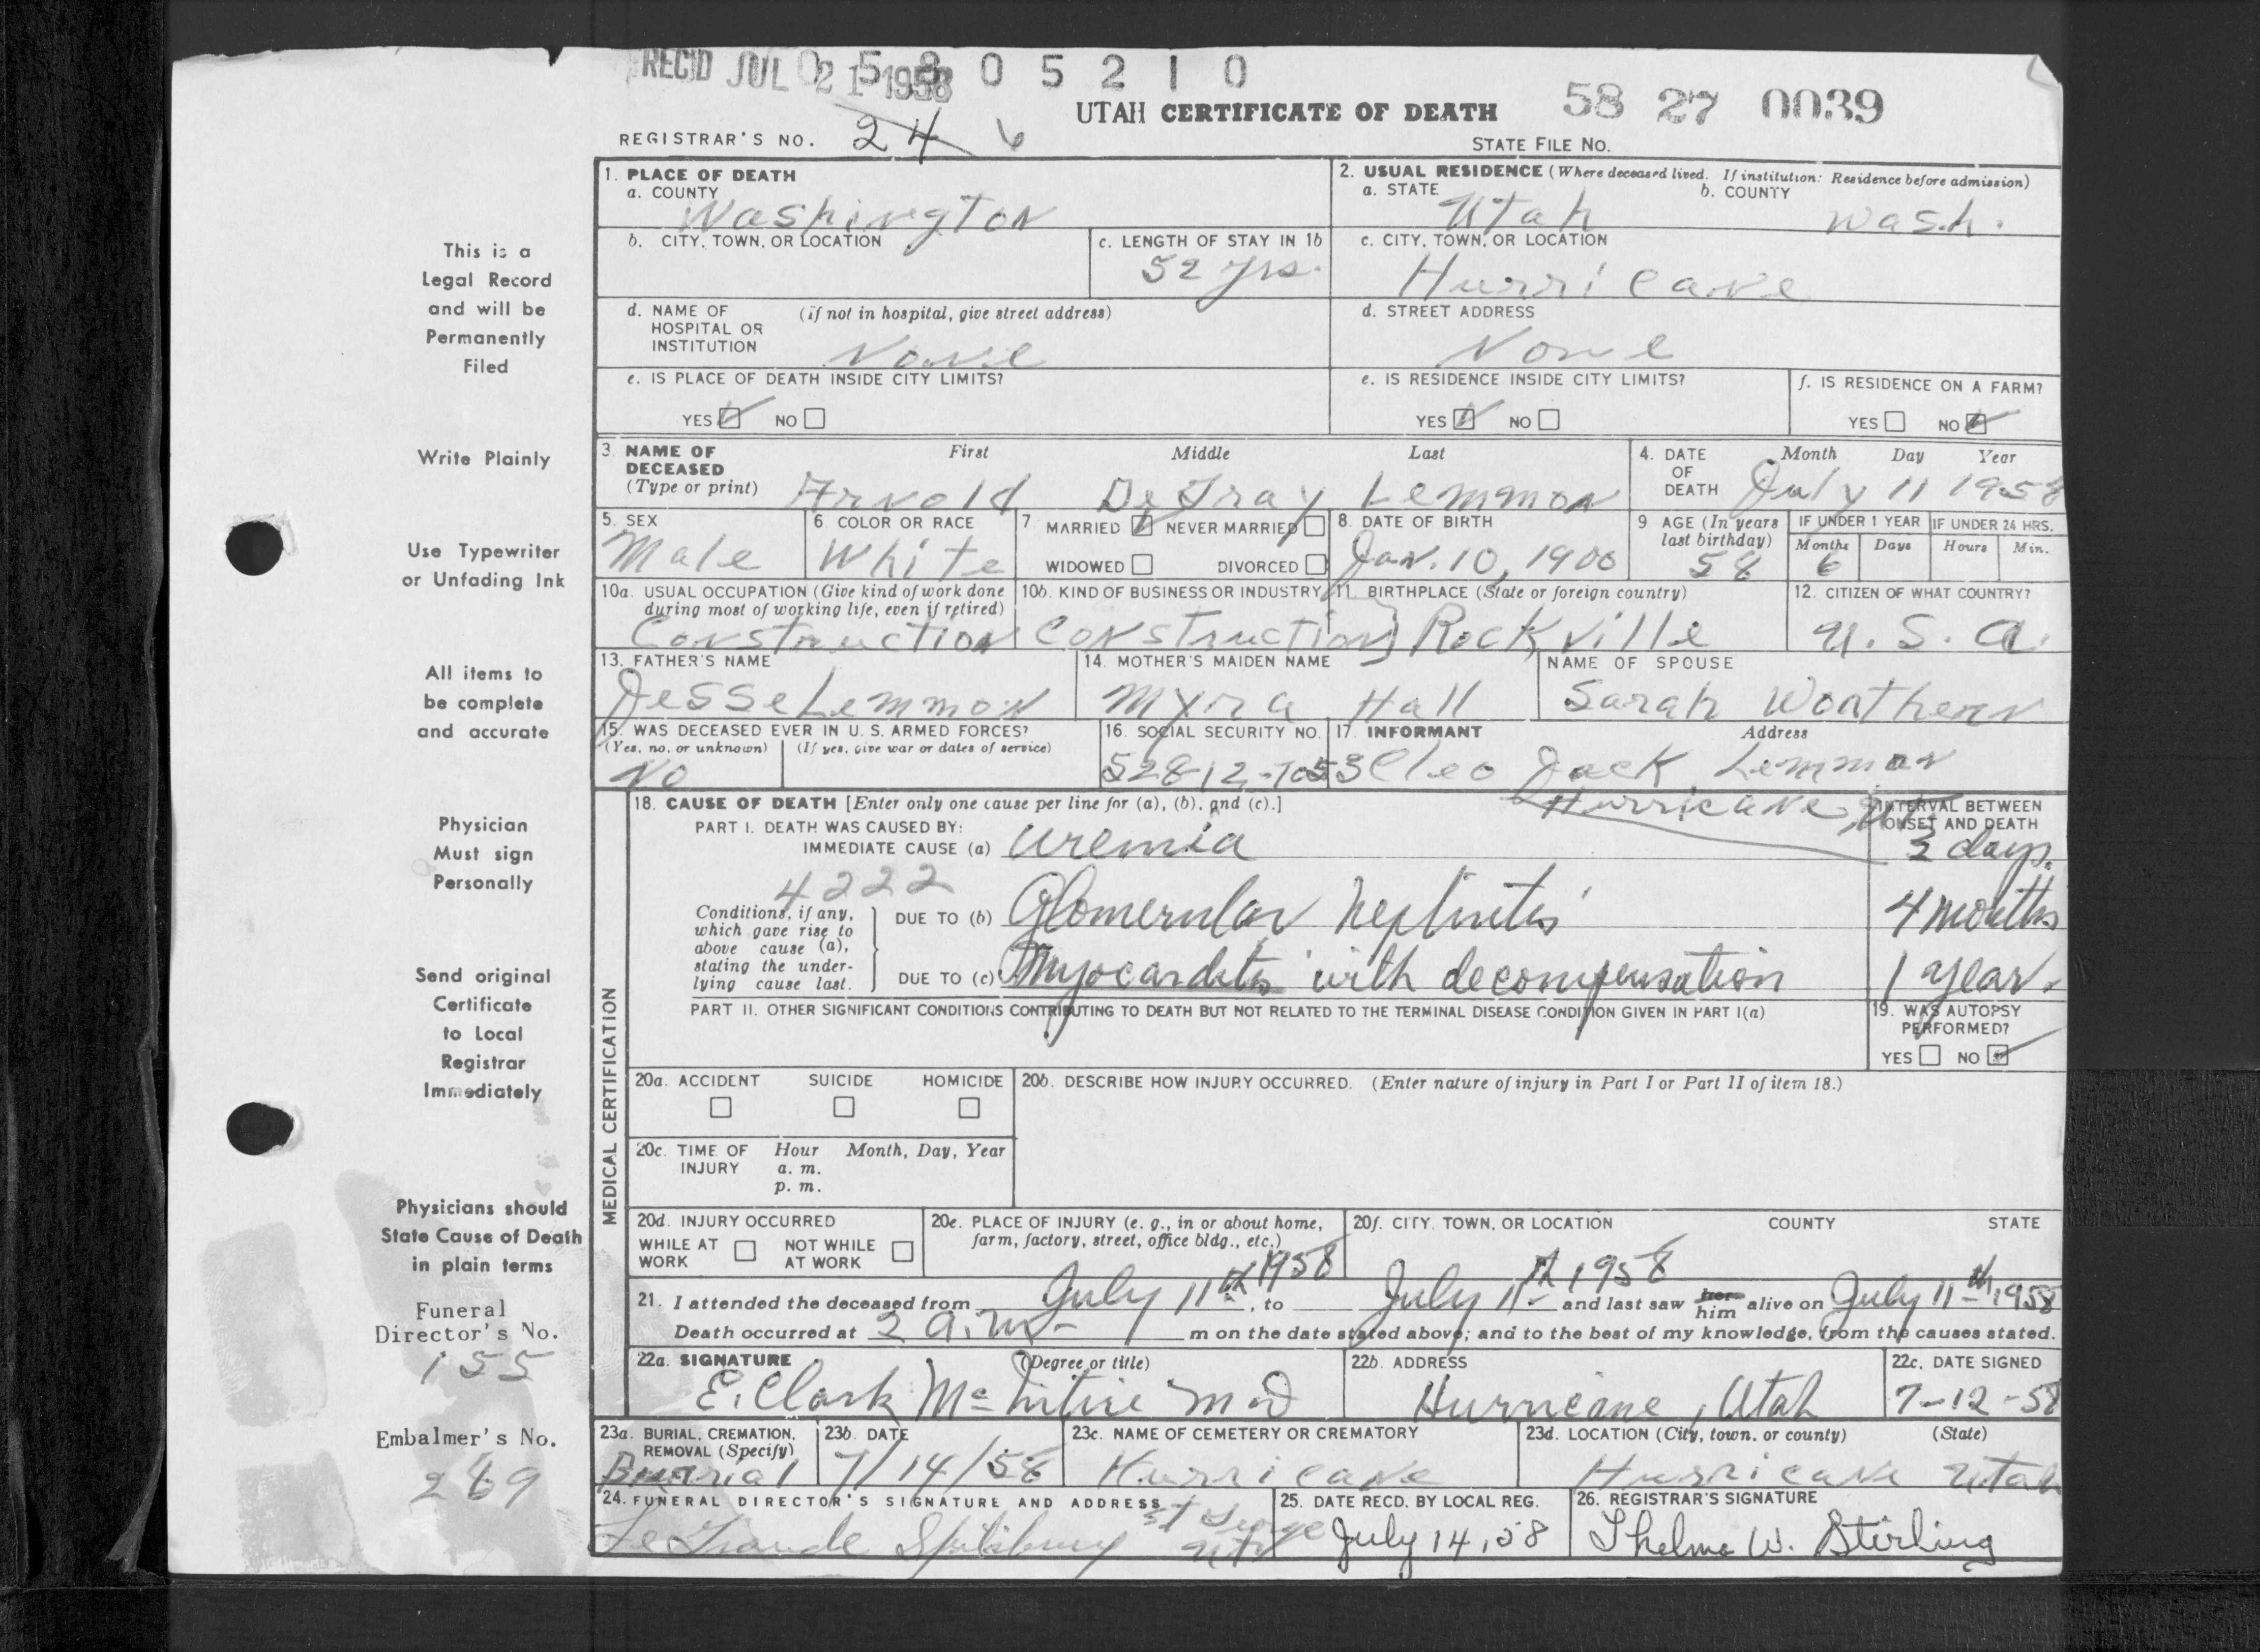 REC'D JUL 21 1958
0 5 8 0 5 2 1 0
UTAH CERTIFICATE OF DEATH 58 27 0039
REGISTRAR'S NO. 24 6 STATE FILE NO.
1. PLACE OF DEATH
a. COUNTY Washington
2. USUAL RESIDENCE (Where deceased lived. If institution: Residence before admission)
a. STATE Utah b. COUNTY Wash.
b. CITY, TOWN, OR LOCATION
c. LENGTH OF STAY IN 1b 52 yrs.
c. CITY, TOWN, OR LOCATION Hurricane
d. NAME OF HOSPITAL OR INSTITUTION (if not in hospital, give street address) None
d. STREET ADDRESS None
e. IS PLACE OF DEATH INSIDE CITY LIMITS?
YES NO
e. IS RESIDENCE INSIDE CITY LIMITS?
YES NO
f. IS RESIDENCE ON A FARM?
YES NO
3. NAME OF DECEASED (Type or print) First Middle Last
Arnold DeGray Lemmon
4. DATE OF DEATH Month Day Year
July 11 1958
5. SEX Male
6. COLOR OR RACE White
7. MARRIED NEVER MARRIED
WIDOWED DIVORCED
8. DATE OF BIRTH Jan. 10, 1900
9 AGE (In years last birthday) 58
IF UNDER 1 YEAR IF UNDER 24 HRS.
Months Days Hours Min.
6
10a. USUAL OCCUPATION (Give kind of work done during most of working life, even if retired)
Construction
10b. KIND OF BUSINESS OR INDUSTRY
Construction
11. BIRTHPLACE (State or foreign country)
Rockville
12. CITIZEN OF WHAT COUNTRY?
U. S. A.
13. FATHER'S NAME
Jesse Lemmon
14. MOTHER'S MAIDEN NAME
Myra Hall
NAME OF SPOUSE
Sarah Worthen
15. WAS DECEASED EVER IN U. S. ARMED FORCES?
(Yes, no, or unknown) (If yes, give war or dates of service)
No
16. SOCIAL SECURITY NO.
528-12-7053
17. INFORMANT Address
Cleo Jack Lemmon
Hurricane, Ut
MEDICAL CERTIFICATION
18. CAUSE OF DEATH [Enter only one cause per line for (a), (b), and (c).]
INTERVAL BETWEEN ONSET AND DEATH
PART I. DEATH WAS CAUSED BY:
IMMEDIATE CAUSE (a) Uremia 3 days.
4222
Conditions, if any, which gave rise to above cause (a), stating the underlying cause last.
DUE TO (b) Glomerular Nephritis 4 months
DUE TO (c) Myocarditis with decompensation 1 year.
PART II. OTHER SIGNIFICANT CONDITIONS CONTRIBUTING TO DEATH BUT NOT RELATED TO THE TERMINAL DISEASE CONDITION GIVEN IN PART I(a)
19. WAS AUTOPSY PERFORMED?
YES NO
20a. ACCIDENT SUICIDE HOMICIDE
20b. DESCRIBE HOW INJURY OCCURRED. (Enter nature of injury in Part I or Part II of item 18.)
20c. TIME OF INJURY Hour Month, Day, Year
a. m.
p. m.
20d. INJURY OCCURRED
WHILE AT WORK NOT WHILE AT WORK
20e. PLACE OF INJURY (e. g., in or about home, farm, factory, street, office bldg., etc.)
20f. CITY, TOWN, OR LOCATION COUNTY STATE
21. I attended the deceased from July 11th 1958, to July 11th 1958 and last saw her him alive on July 11th, 1958
Death occurred at 2 a.m. m on the date stated above; and to the best of my knowledge, from the causes stated.
22a. SIGNATURE (Degree or title)
E. Clark McIntire MD
22b. ADDRESS
Hurricane, Utah
22c. DATE SIGNED
7-12-58
23a. BURIAL, CREMATION, REMOVAL (Specify)
Burrial
23b. DATE
7/14/58
23c. NAME OF CEMETERY OR CREMATORY
Hurricane
23d. LOCATION (City, town, or county) (State)
Hurricane Utah
24. FUNERAL DIRECTOR'S SIGNATURE AND ADDRESS
LeGrande Spilsbury St George Utah
25. DATE RECD. BY LOCAL REG.
July 14, 58
26. REGISTRAR'S SIGNATURE
Thelma W. Stirling
This is a
Legal Record
and will be
Permanently
Filed
Write Plainly
Use Typewriter
or Unfading Ink
All items to
be complete
and accurate
Physician
Must sign
Personally
Send original
Certificate
to Local
Registrar
Immediately
Physicians should
State Cause of Death
in plain terms
Funeral
Director's No.
155
Embalmer's No.
269